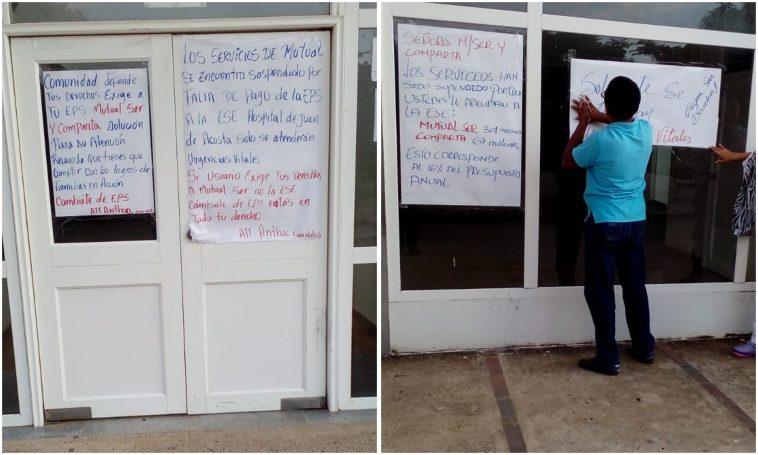 Comunidad defiende
Tus Derechos Exige a
Tu EPS Mutual Ser
Y Comparta Solución
Para Su Atención
Recuerdo que tienes que
Cumplir con los logros de
familias en Acción
Cambiate de EPS
Att Anthoc
LOS SERVICIOS DE Mutual
SE ENCUENTRA SOSPENDIDO POR
FALTA DE PAGO de la EPS
A LA ESE HOSPITAL de Juan
de Acosta Solo se atenderán
Urgencias Vitales
Sr Usuario Exige Tus Derechos
A Mutual Ser no la ESE
Cámbiate de EPS estás en
Todo tu derecho
Att Anthoc
SEÑORES M/SER Y
COMPARTA
LOS SERVICIOS HAN
SIDO SUPENDIDO PORQUE
USTEDES LE ADEUDAN A
LA ESE:
MUTUAL SER 301 millones
COMPARTA 67 millones
ESTO CORRESPONDE
AL 16% DEL PRESUPUESTO
ANUAL
Se
Vitales
Exigan Sus
Derechos!